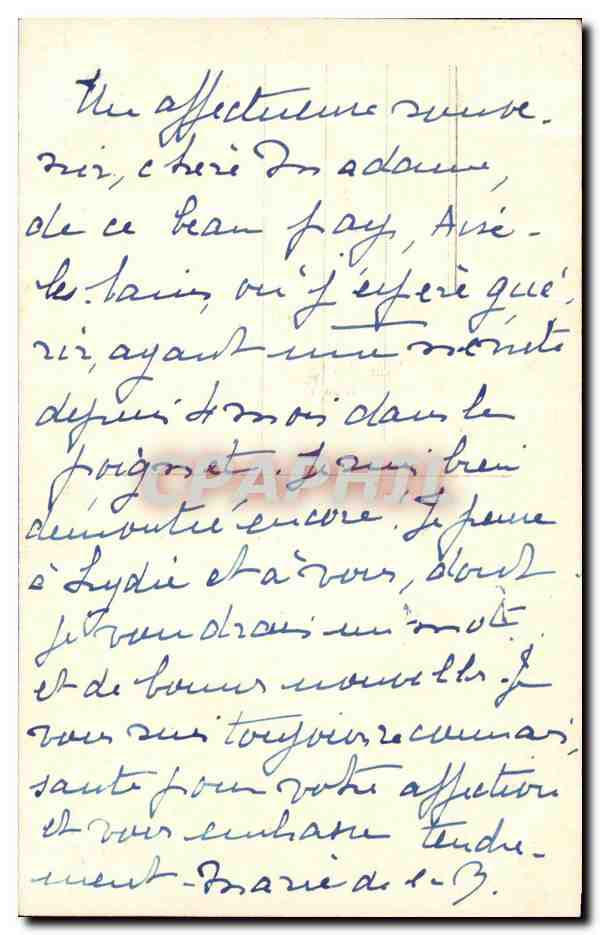 Un affectueux souve-
nir, chère Madame,
de ce beau pays, Aix-
les-bains, où j'espère gué-
rir, ayant une névrite
depuis 4 mois dans le
poignet. Je suis bien
démontée encore! Je pense
à Lydie et à vous, dont
je voudrais un mot
et de bonnes nouvelles. Je
vous suis toujours reconnais,
sante pour votre affection
et vous embrasse tendre-
ment - Marie de la B.
CPAPHIL